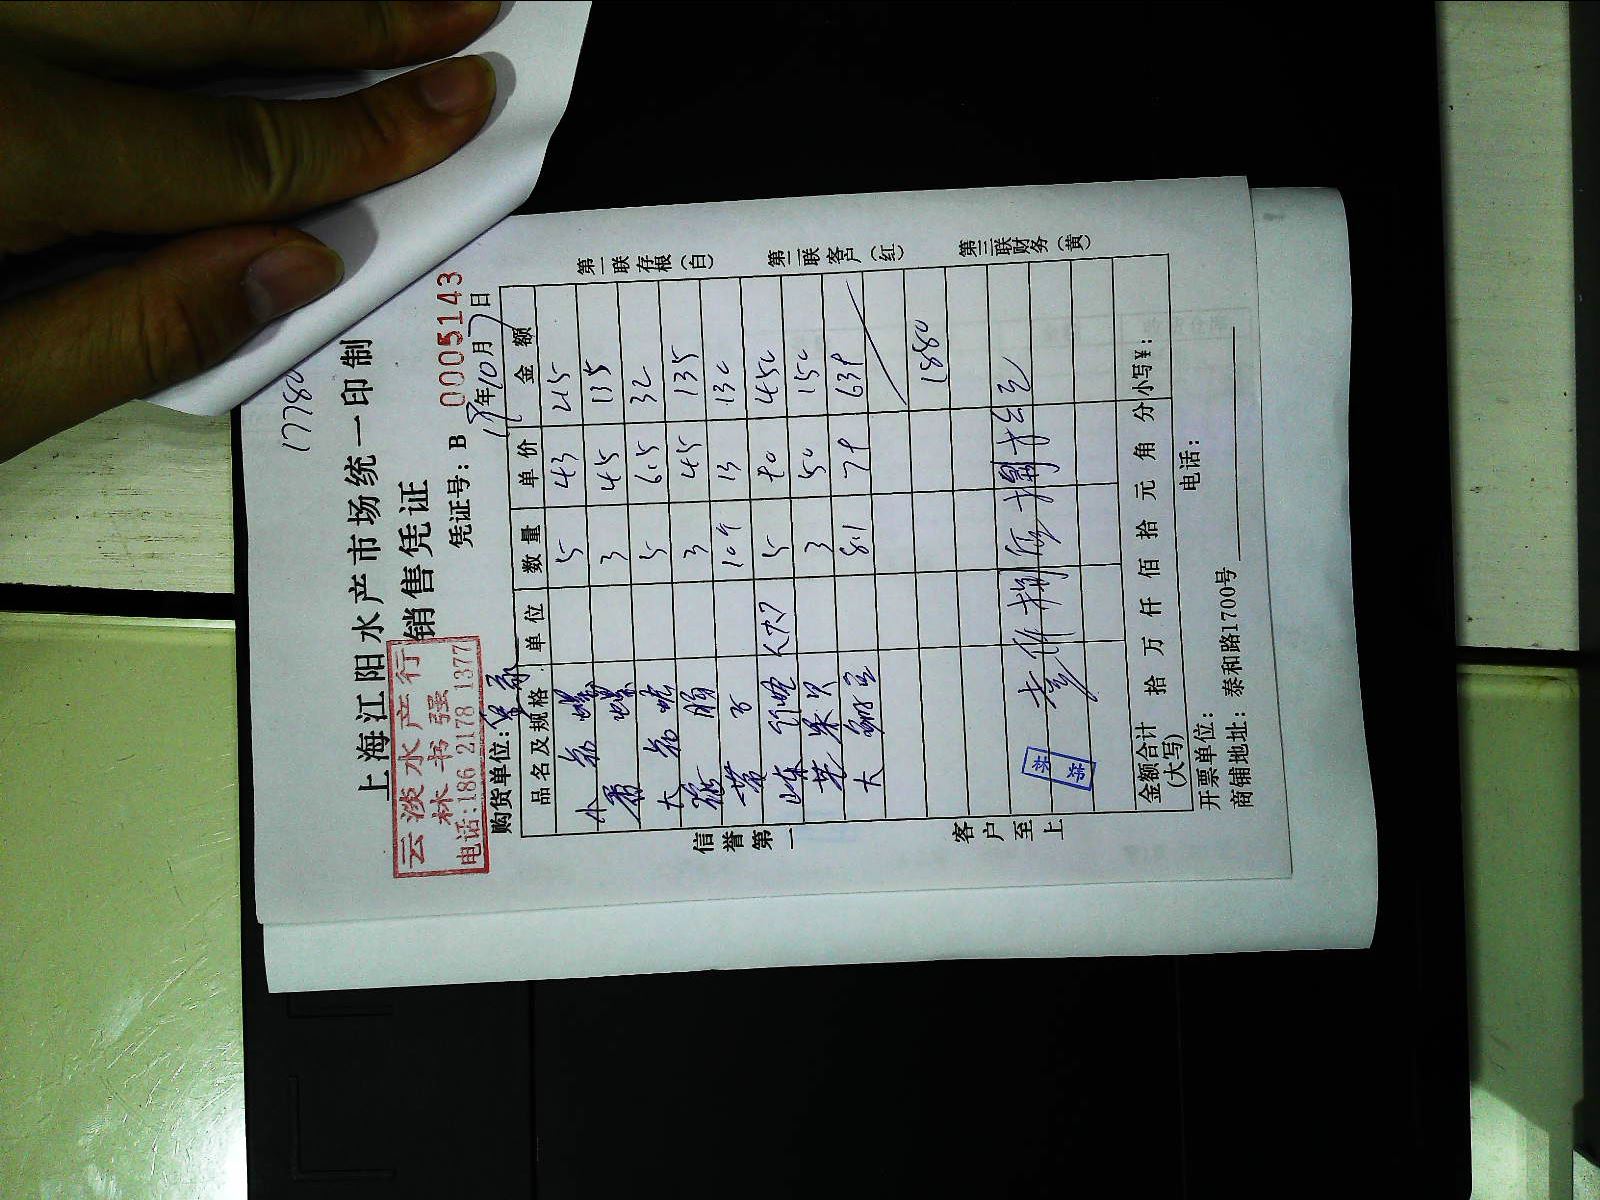 1778
上海江阳水产市场统一印制
销售凭证
云淡水产行
林书强
电话:186 2178 1377
凭证号: B 0005143
购货单位: 年10月7日
品名及规格 单位 数量 单价 金额
小 5 43 215
香螺 3 45 135
大 5 6.5 32
3 45 135
10个 13 130
5 90 450
3 50 150
大 8.1 79 639
1880
壹仟捌佰捌拾元
金额合计(大写) 拾 万 仟 佰 拾 元 角 分 小写¥:
开票单位: 电话:
商铺地址: 泰和路1700号
信誉第一
客户至上
第一联存根(白)
第二联客户(红)
第三联财务(黄)